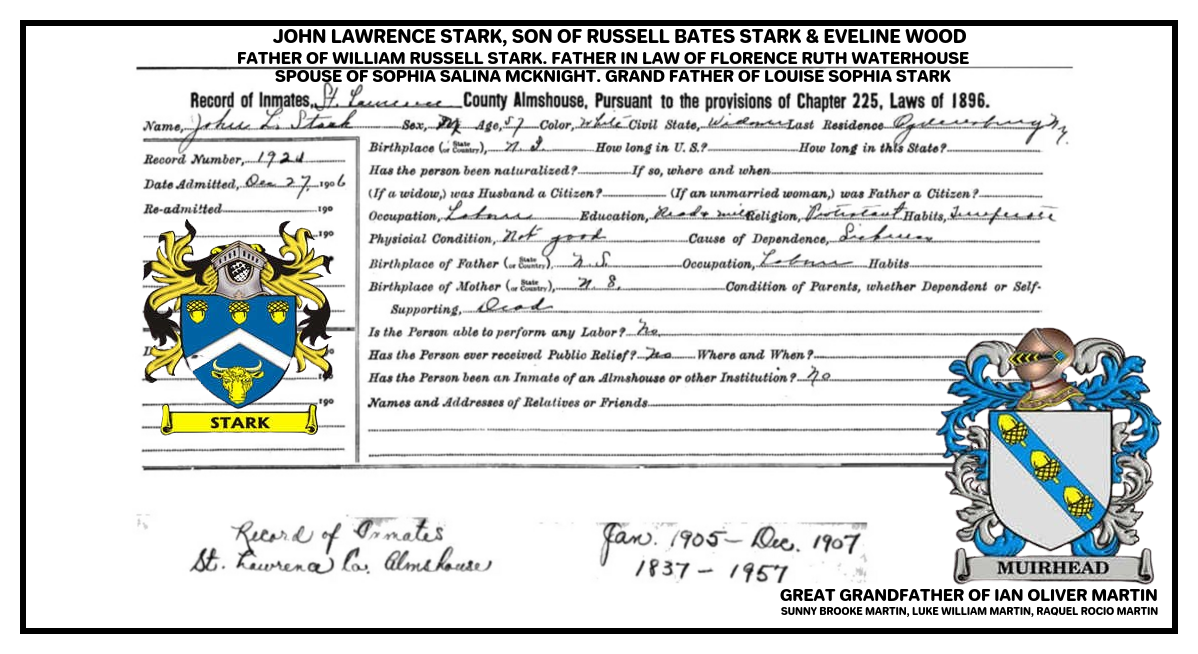 JOHN LAWRENCE STARK, SON OF RUSSELL BATES STARK & EVELINE WOOD
FATHER OF WILLIAM RUSSELL STARK. FATHER IN LAW OF FLORENCE RUTH WATERHOUSE
SPOUSE OF SOPHIA SALINA MCKNIGHT. GRAND FATHER OF LOUISE SOPHIA STARK
Record of Inmates, St. Lawrence County Almshouse, Pursuant to the provisions of Chapter 225, Laws of 1896.
Name, John L. Stark Sex, M Age, 57 Color, White Civil State, Widower Last Residence Ogdensburg N.Y.
Record Number, 1921
Date Admitted, Dec 27, 1906
Re-admitted 190
190
190
190
Birthplace (or State Country), How long in U.S.? How long in this State?
Has the person been naturalized? If so, where and when
(If a widow,) was Husband a Citizen? (If an unmarried woman,) was Father a Citizen?
Occupation, Laborer Education, Read & Religion, Protestant Habits, Intemperate
Physicial Condition, Not good Cause of Dependence, Sickness
Birthplace of Father (or State Country), N.S. Occupation, Laborer Habits
Birthplace of Mother (or State Country), N.S. Condition of Parents, whether Dependent or Self-
Supporting, Dead
Is the Person able to perform any Labor? No
Has the Person ever received Public Relief? Where and When?
Has the Person been an Inmate of an Almshouse or other Institution? No
Names and Addresses of Relatives or Friends
STARK
Record of Inmates
St. Lawrence Co. Almshouse
Jan. 1905 – Dec. 1907
1837 – 1957
MUIRHEAD
GREAT GRANDFATHER OF IAN OLIVER MARTIN
SUNNY BROOKE MARTIN, LUKE WILLIAM MARTIN, RAQUEL ROCIO MARTIN